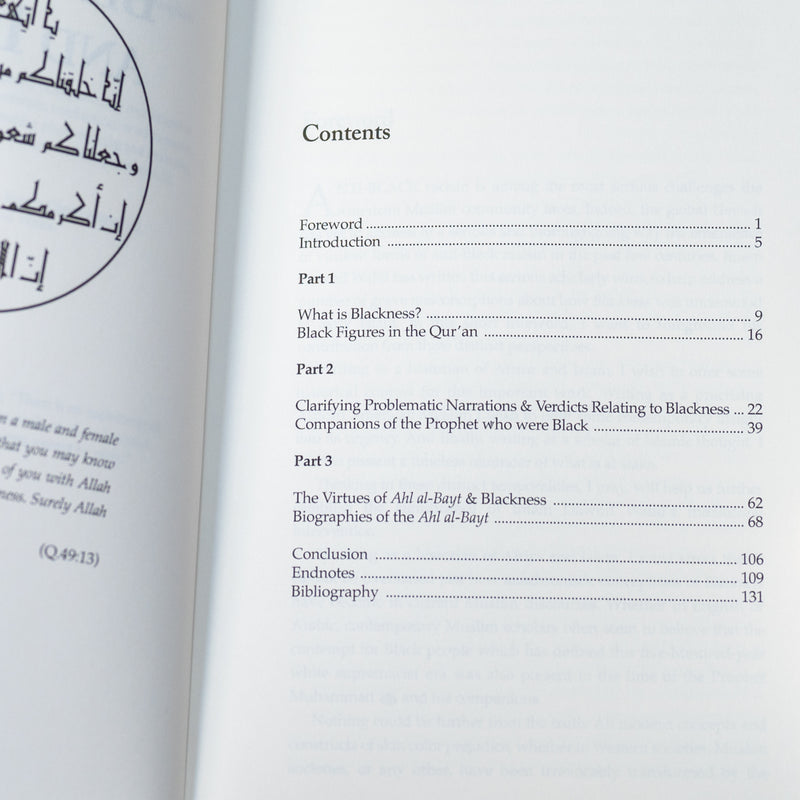 يا أيها
إنا خلقناكم من
وجعلناكم شعو
إن أكرمكم
إن الله
n a male and female
that you may know
of you with Allah
ness. Surely Allah
(Q.49:13)
Contents
Foreword ........ 1
Introduction ........ 5
Part 1
What is Blackness? ........ 9
Black Figures in the Qur'an ........ 16
Part 2
Clarifying Problematic Narrations & Verdicts Relating to Blackness ... 22
Companions of the Prophet who were Black ........ 39
Part 3
The Virtues of Ahl al-Bayt & Blackness ........ 62
Biographies of the Ahl al-Bayt ........ 68
Conclusion ........ 106
Endnotes ........ 109
Bibliography ........ 131